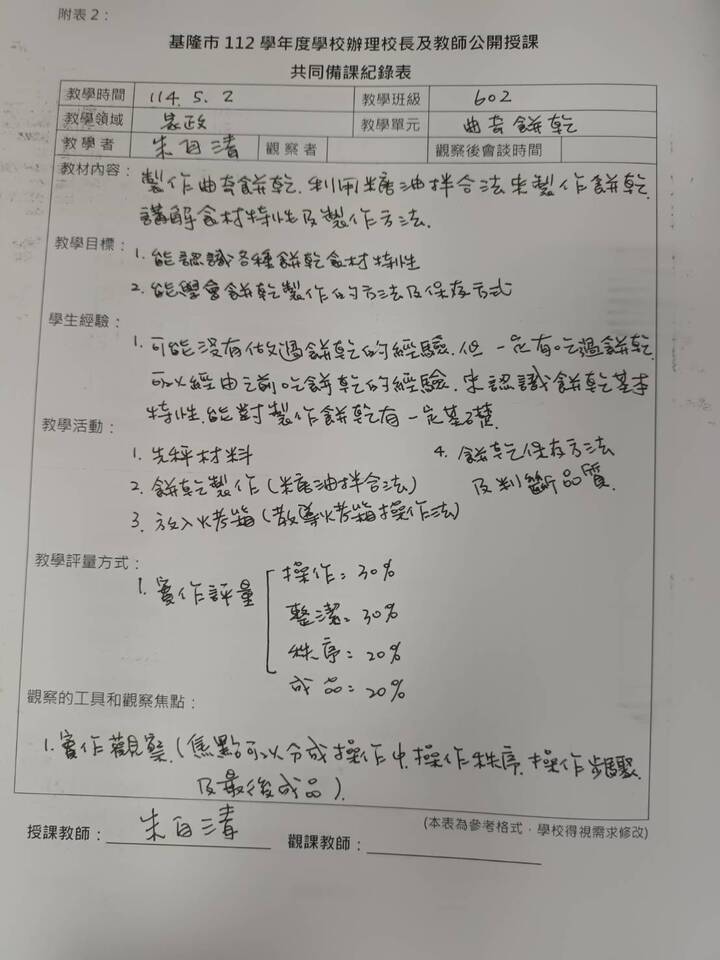 附表2：
基隆市 112 學年度學校辦理校長及教師公開授課
共同備課紀錄表
教學時間 114. 5. 2 教學班級 602
教學領域 家政 教學單元 曲奇餅乾
教學者 朱自清 觀察者 觀察後會談時間
教材內容： 製作曲奇餅乾. 利用糖油拌合法來製作餅乾.
講解食材特性及製作方法.
教學目標： 1. 能認識各種餅乾食材特性
2. 能學會餅乾製作的方法及保存方式
學生經驗： 1. 可能沒有做過餅乾的經驗. 但一定有吃過餅乾.
可以經由之前吃餅乾的經驗. 來認識餅乾基本
特性. 能對製作餅乾有一定基礎.
教學活動：
1. 先秤材料
2. 餅乾製作 (糖油拌合法)
3. 放入烤箱 (教導烤箱操作法)
4. 餅乾保存方法
及判斷品質.
教學評量方式：
1. 實作評量
操作：30%
整潔：30%
秩序：20%
成品：20%
觀察的工具和觀察焦點：
1. 實作觀察. (焦點可以分成操作中. 操作秩序. 操作步驟.
及最後成品).
(本表為參考格式，學校得視需求修改)
授課教師： 朱自清 觀課教師：